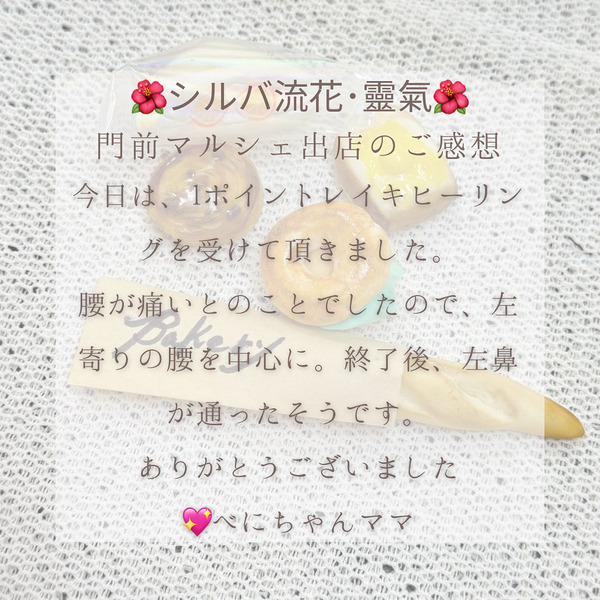 🌺シルバ流花･靈氣🌺
門前マルシェ出店のご感想
今日は、1ポイントレイキヒーリン
グを受けて頂きました。
腰が痛いとのことでしたので、左
寄りの腰を中心に。終了後、左鼻
が通ったそうです。
ありがとうございました
💖べにちゃんママ
Bakery